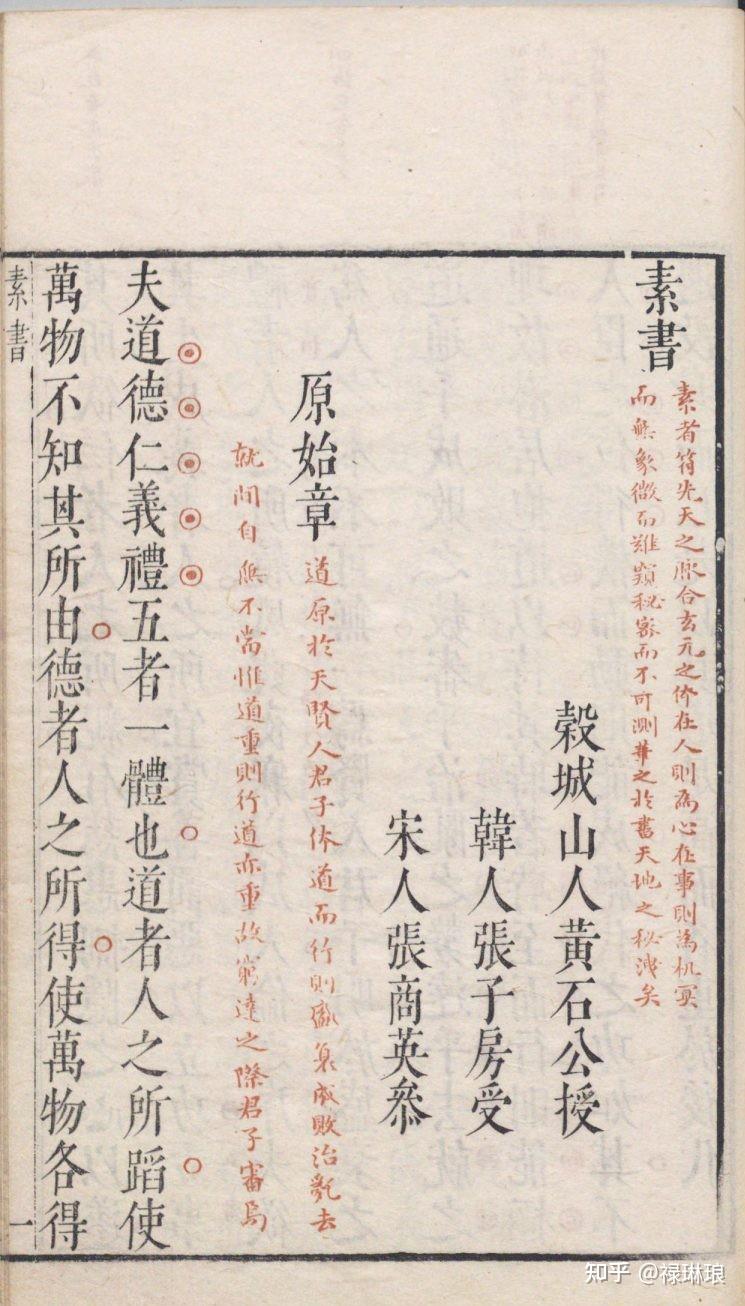 素書
素者符先天之脈合玄元之價在人則為心在事則為机冥
而無象微而難窺秘密而不可測華之於書天地之秘洩矣
穀城山人黃石公授
韓人張子房受
宋人張商英叅
原始章
道原於天賢人君子体道而行則盛衰成敗治亂去
就間自無不當惟道重則行道亦重故窮達之際君子審焉
夫道德仁義禮五者一體也道者人之所蹈使
萬物不知其所由德者人之所得使萬物各得
素書
一
知乎 @禄琳琅